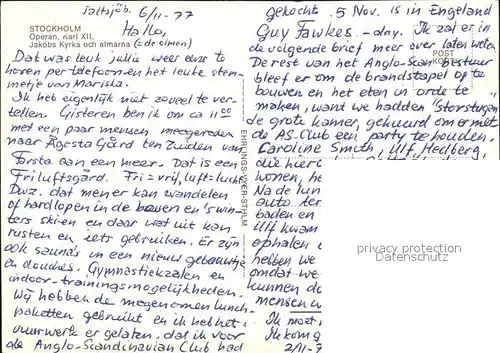 Saltsjöb. 6/11-77
STOCKHOLM
Operan, Karl XII,
Jakobs Kyrka och almarna (= de olmen)
Hallo,
Dat was leuk jullie weer eens te
horen per telefoon en het leuke stem-
metje van Mariska.
Ik heb eigenlijk niet zoveel te ver-
tellen. Gisteren ben ik om ca 11 00
met een paar mensen meegereden
naar Ågesta Gård ten Zuiden van
Farsta aan een meer. Dat is een
Friluftsgård. Fri = vrij, luft = lucht
Dwz. dat men er kan wandelen
of hardlopen in de bossen en 's win-
ters ski-en en daar wat uit kan
rusten en iets gebruiken. Er zijn
ook sauna's in een nieuw gebouwtje
en douches. Gymnastiekzalen en
indoor-trainingsmogelijkheden.
Wij hebben de meegenomen lunch-
paketten gebruikt en ik heb het
vuurwerk er gelaten, dat ik voor
de Anglo-Scandinavian Club had
EHRLINGS
STHLM
gekocht. 5 Nov. is in Engeland
Guy Fawkes-day. Ik zal er in
de volgende brief meer over laten weten
De rest van het Anglo-Scan bestuur
bleef er om de brandstapel op te
bouwen en het eten in orde te
maken, want we hadden "storstugan"
de grote kamer, gehuurd om er met
de A.S. Club een party te houden.
Caroline Smith, Ulf Hedberg,
die hier
wonen, h
Na de tun
auto ter
baden en
Ulf kwam
ophalen
hebben we
omdat we
kunnen d
mensen
Ik moet
Ik kom g
2/11-7
POST
privacy protection
Datenschutz